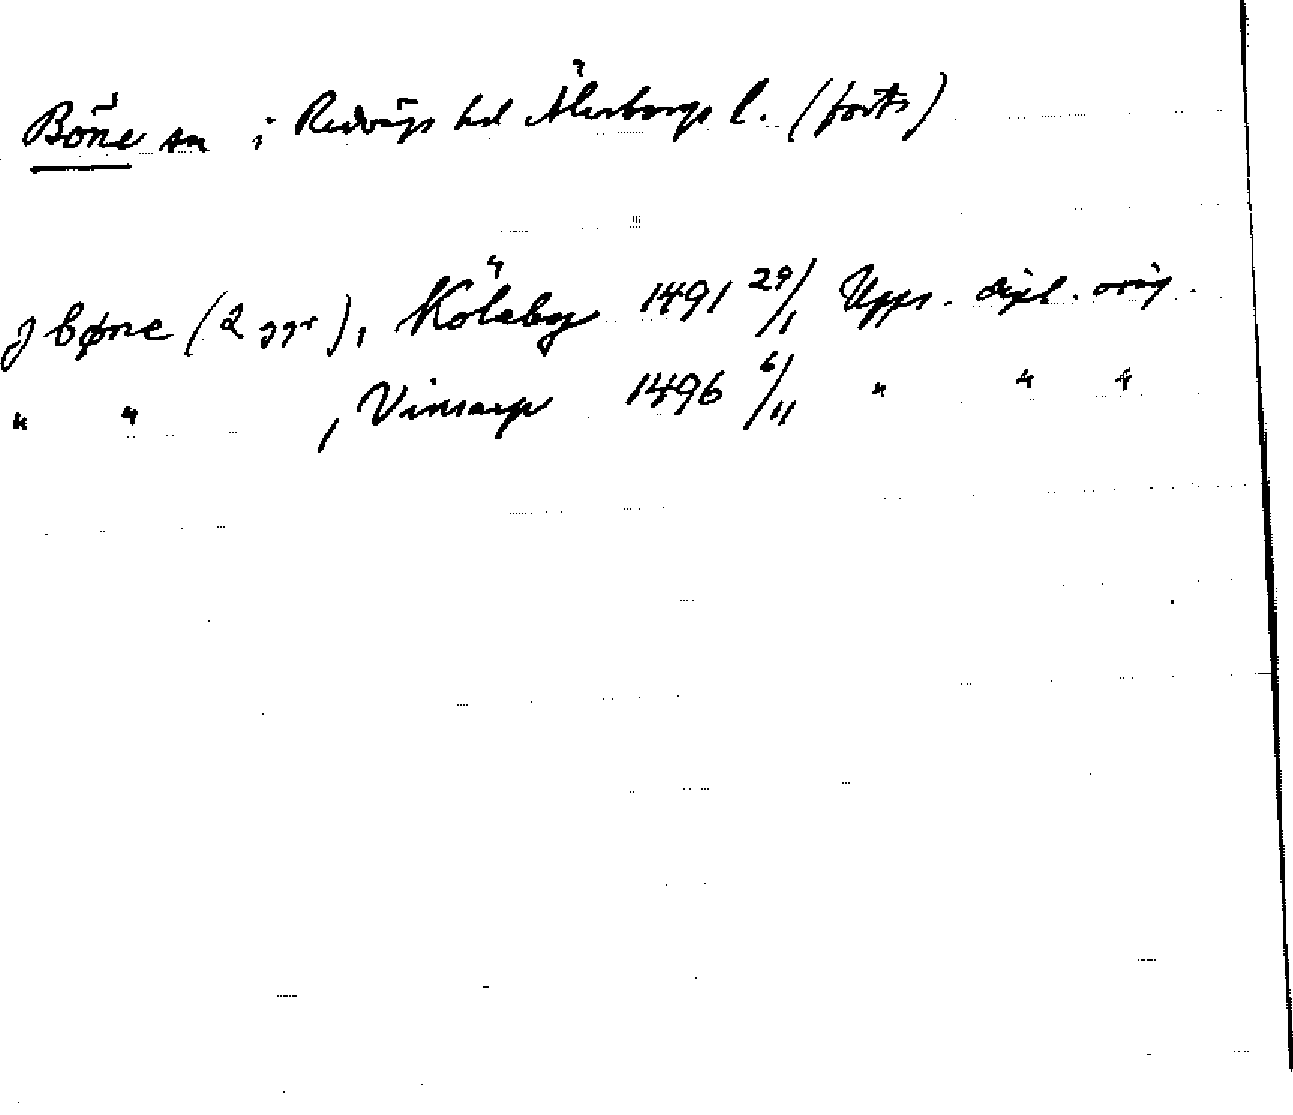 Böne sn i Redvägs hd Älvsborgs l. (forts)
j bøne (2 ggr), Kölaby 1491 29/1 Upps. dipl. orig.
" " , Vinsarp 1496 6/11 " " "